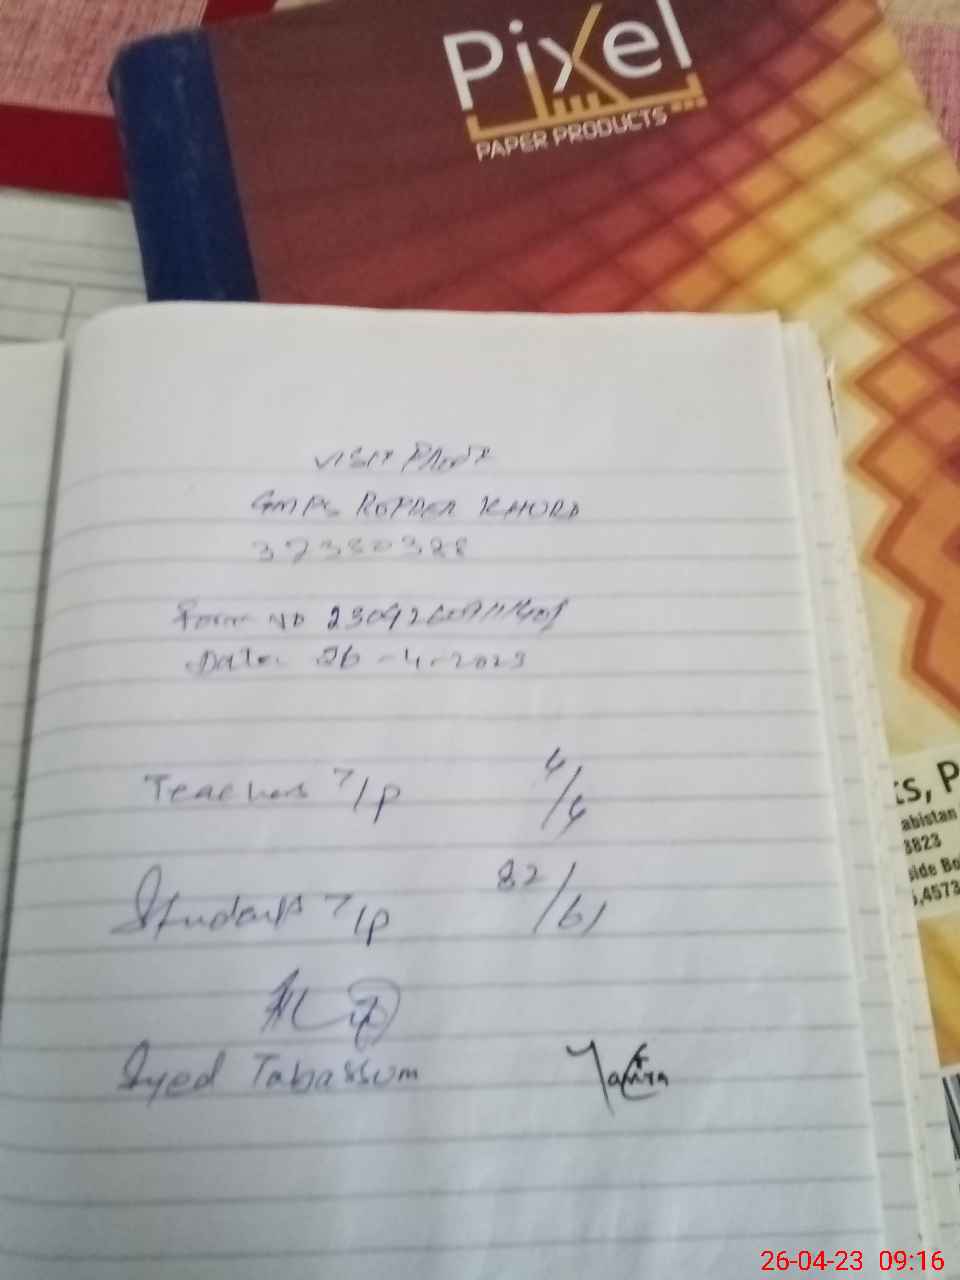 Pixel
PAPER PRODUCTS
VISIT PROOF
GMPS KHURD
37330328
Form NO
Date. 26-4-2023
Teachers T/P 4/4
Students T/P 82/61
Syed Tabassum
ts, P
abistan
3823
side Bo
,4573
26-04-23 09:16